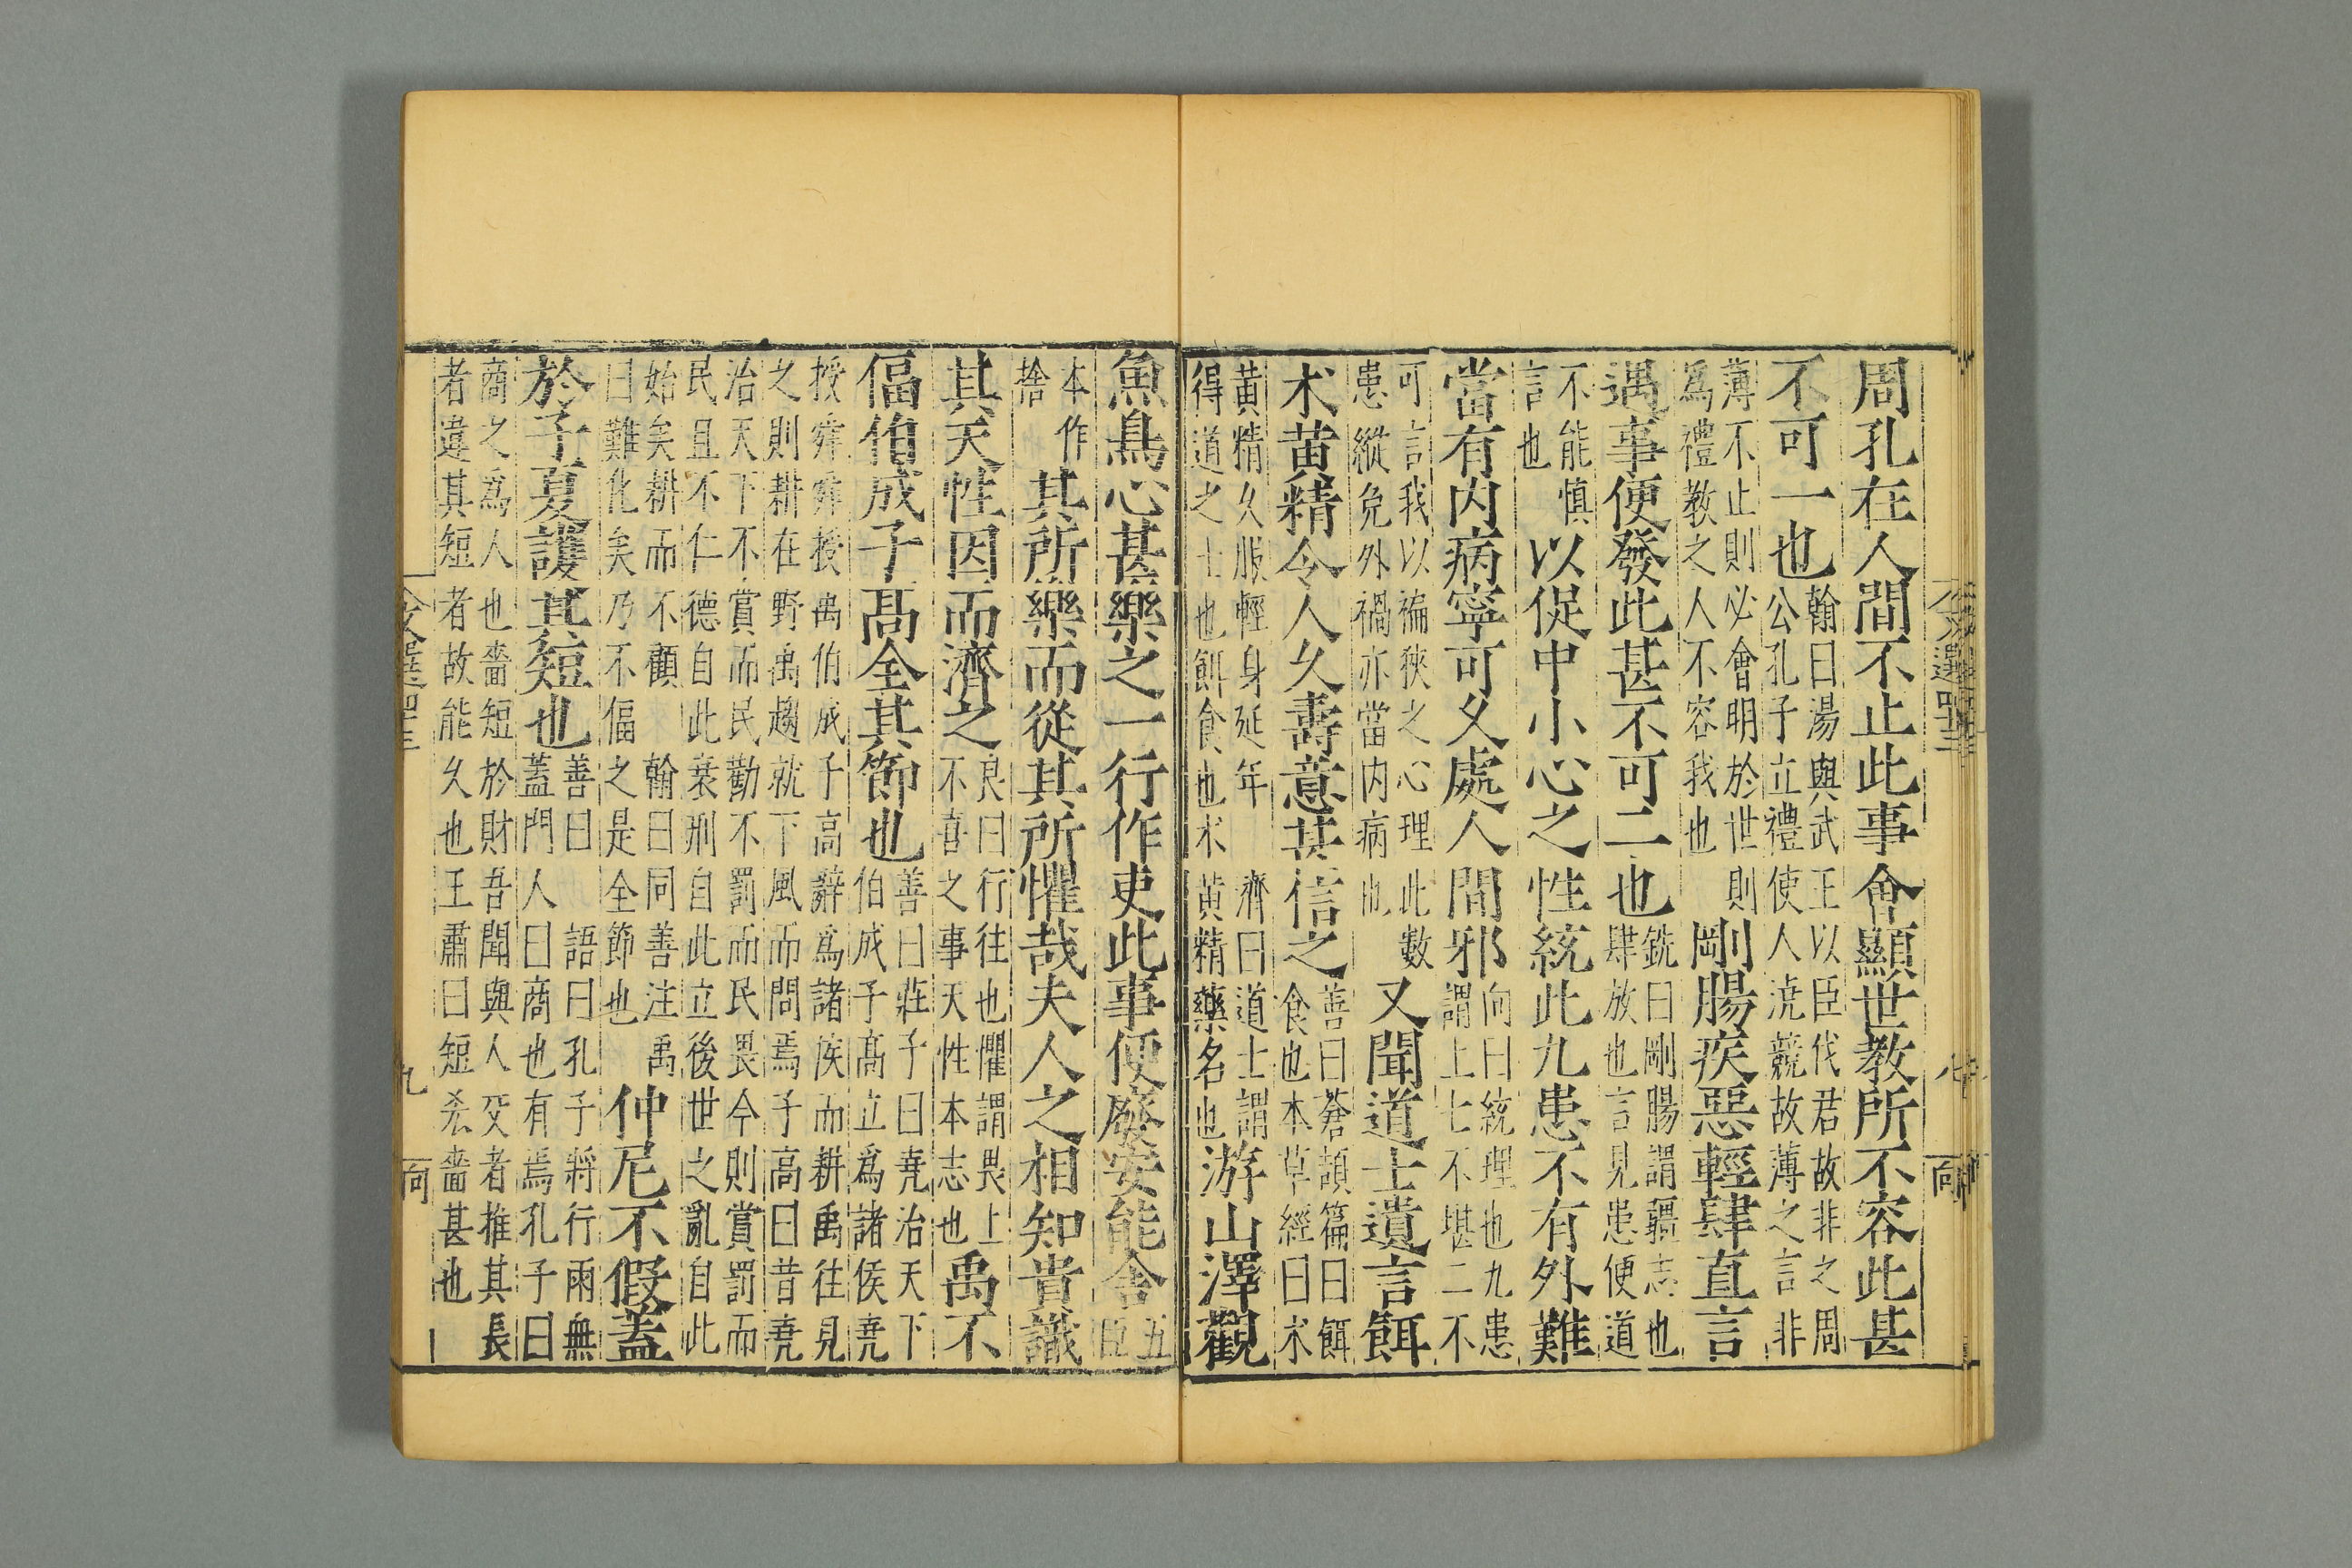 周孔在人間不止此事會顯世教所不容此甚
不可一也翰曰湯與武王以臣伐君故非之周
公孔子立禮使人澆競故薄之言非
薄不止則必會明於世則
爲禮教之人不容我也
剛腸疾惡輕肆直言
遇事便發此甚不可二也銑曰剛腸謂彊志也
肆放也言見患便道
不能慎
言也
以促中小心之性統此九患不有外難
當有内病寧可久處人間邪向曰統理也九患
謂上七不堪二不
可言我以褊狹之心理此數
患縱免外禍亦當内病也
又聞道士遺言餌
术黄精令人久壽意甚信之善曰蒼頡篇曰餌
食也本草經曰术
黄精久服輕身延年 濟曰道士謂
得道之士也餌食也术黄精藥名也
游山澤觀
魚鳥心甚樂之一行作吏此事便廢安能舍五
臣
本作
捨
其所樂而從其所懼哉夫人之相知貴識
其天性因而濟之良曰行往也懼謂畏上
不喜之事天性本志也
禹不
偪伯成子高全其節也善曰莊子曰尭治天下
伯成子髙立爲諸侯尭
授舜舜授禹伯成子高辭爲諸侯而耕禹往見
之則耕在野禹趨就下風而問焉子高曰昔尭
治天下不賞而民勸不罰而民畏今則賞罰而
民且不仁德自此衰刑自此立後世之亂自此
始矣耕而不顧 翰曰同善注禹
曰難化矣乃不偪之是全節也
仲尼不假蓋
於子夏護其短也善曰 語曰孔子將行雨無
蓋門人曰商也有焉孔子曰
商之爲人也嗇短於財吾聞與人交者推其長
者違其短者故能久也王肅曰短吝嗇甚也
文選四十三
八
向
文選四十三
九
向